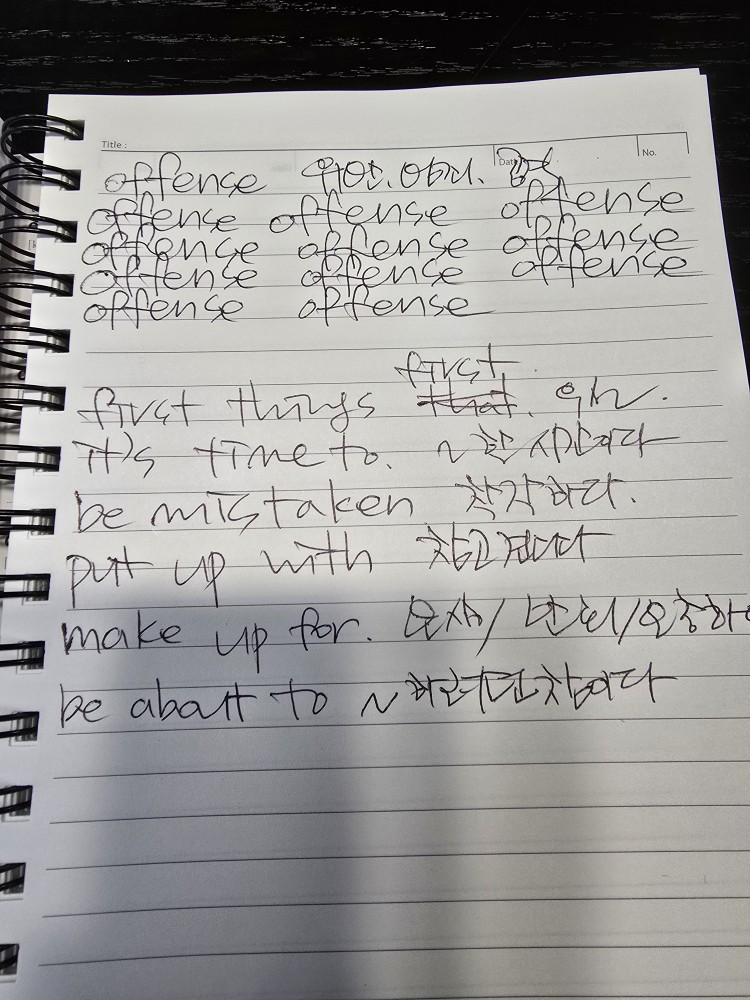 Title :
Date
No.
offense
offense offense offense
offense offense offense
offense offense offense
offense offense
first
first things that.
it's time to. ~할 시간이다
be mistaken 착각하다.
put up with 참고 견디다
make up for.
be about to ~하려던 참이다